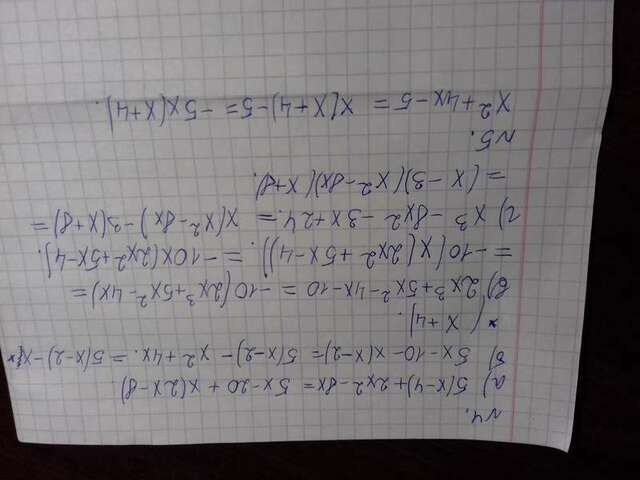 №4.
а) 5(x-4)+2x²-8x= 5x-20 + x(2x-8)
б) 5x-10-x(x-2)= 5(x-2)- x²+4x. = 5(x-2)-x
(x+4).
в) 2x³+5x²-4x-10 = -10(2x³+5x²-4x)=
= -10(x(2x²+5x-4)). = -10x(2x²+5x-4).
г) x³-8x²-3x+24.= x(x²-8x)-3(x+8)=
= (x-3)(x²-8x)(x+8).
№5.
x²+4x-5= x(x+4)-5= -5x(x+4).